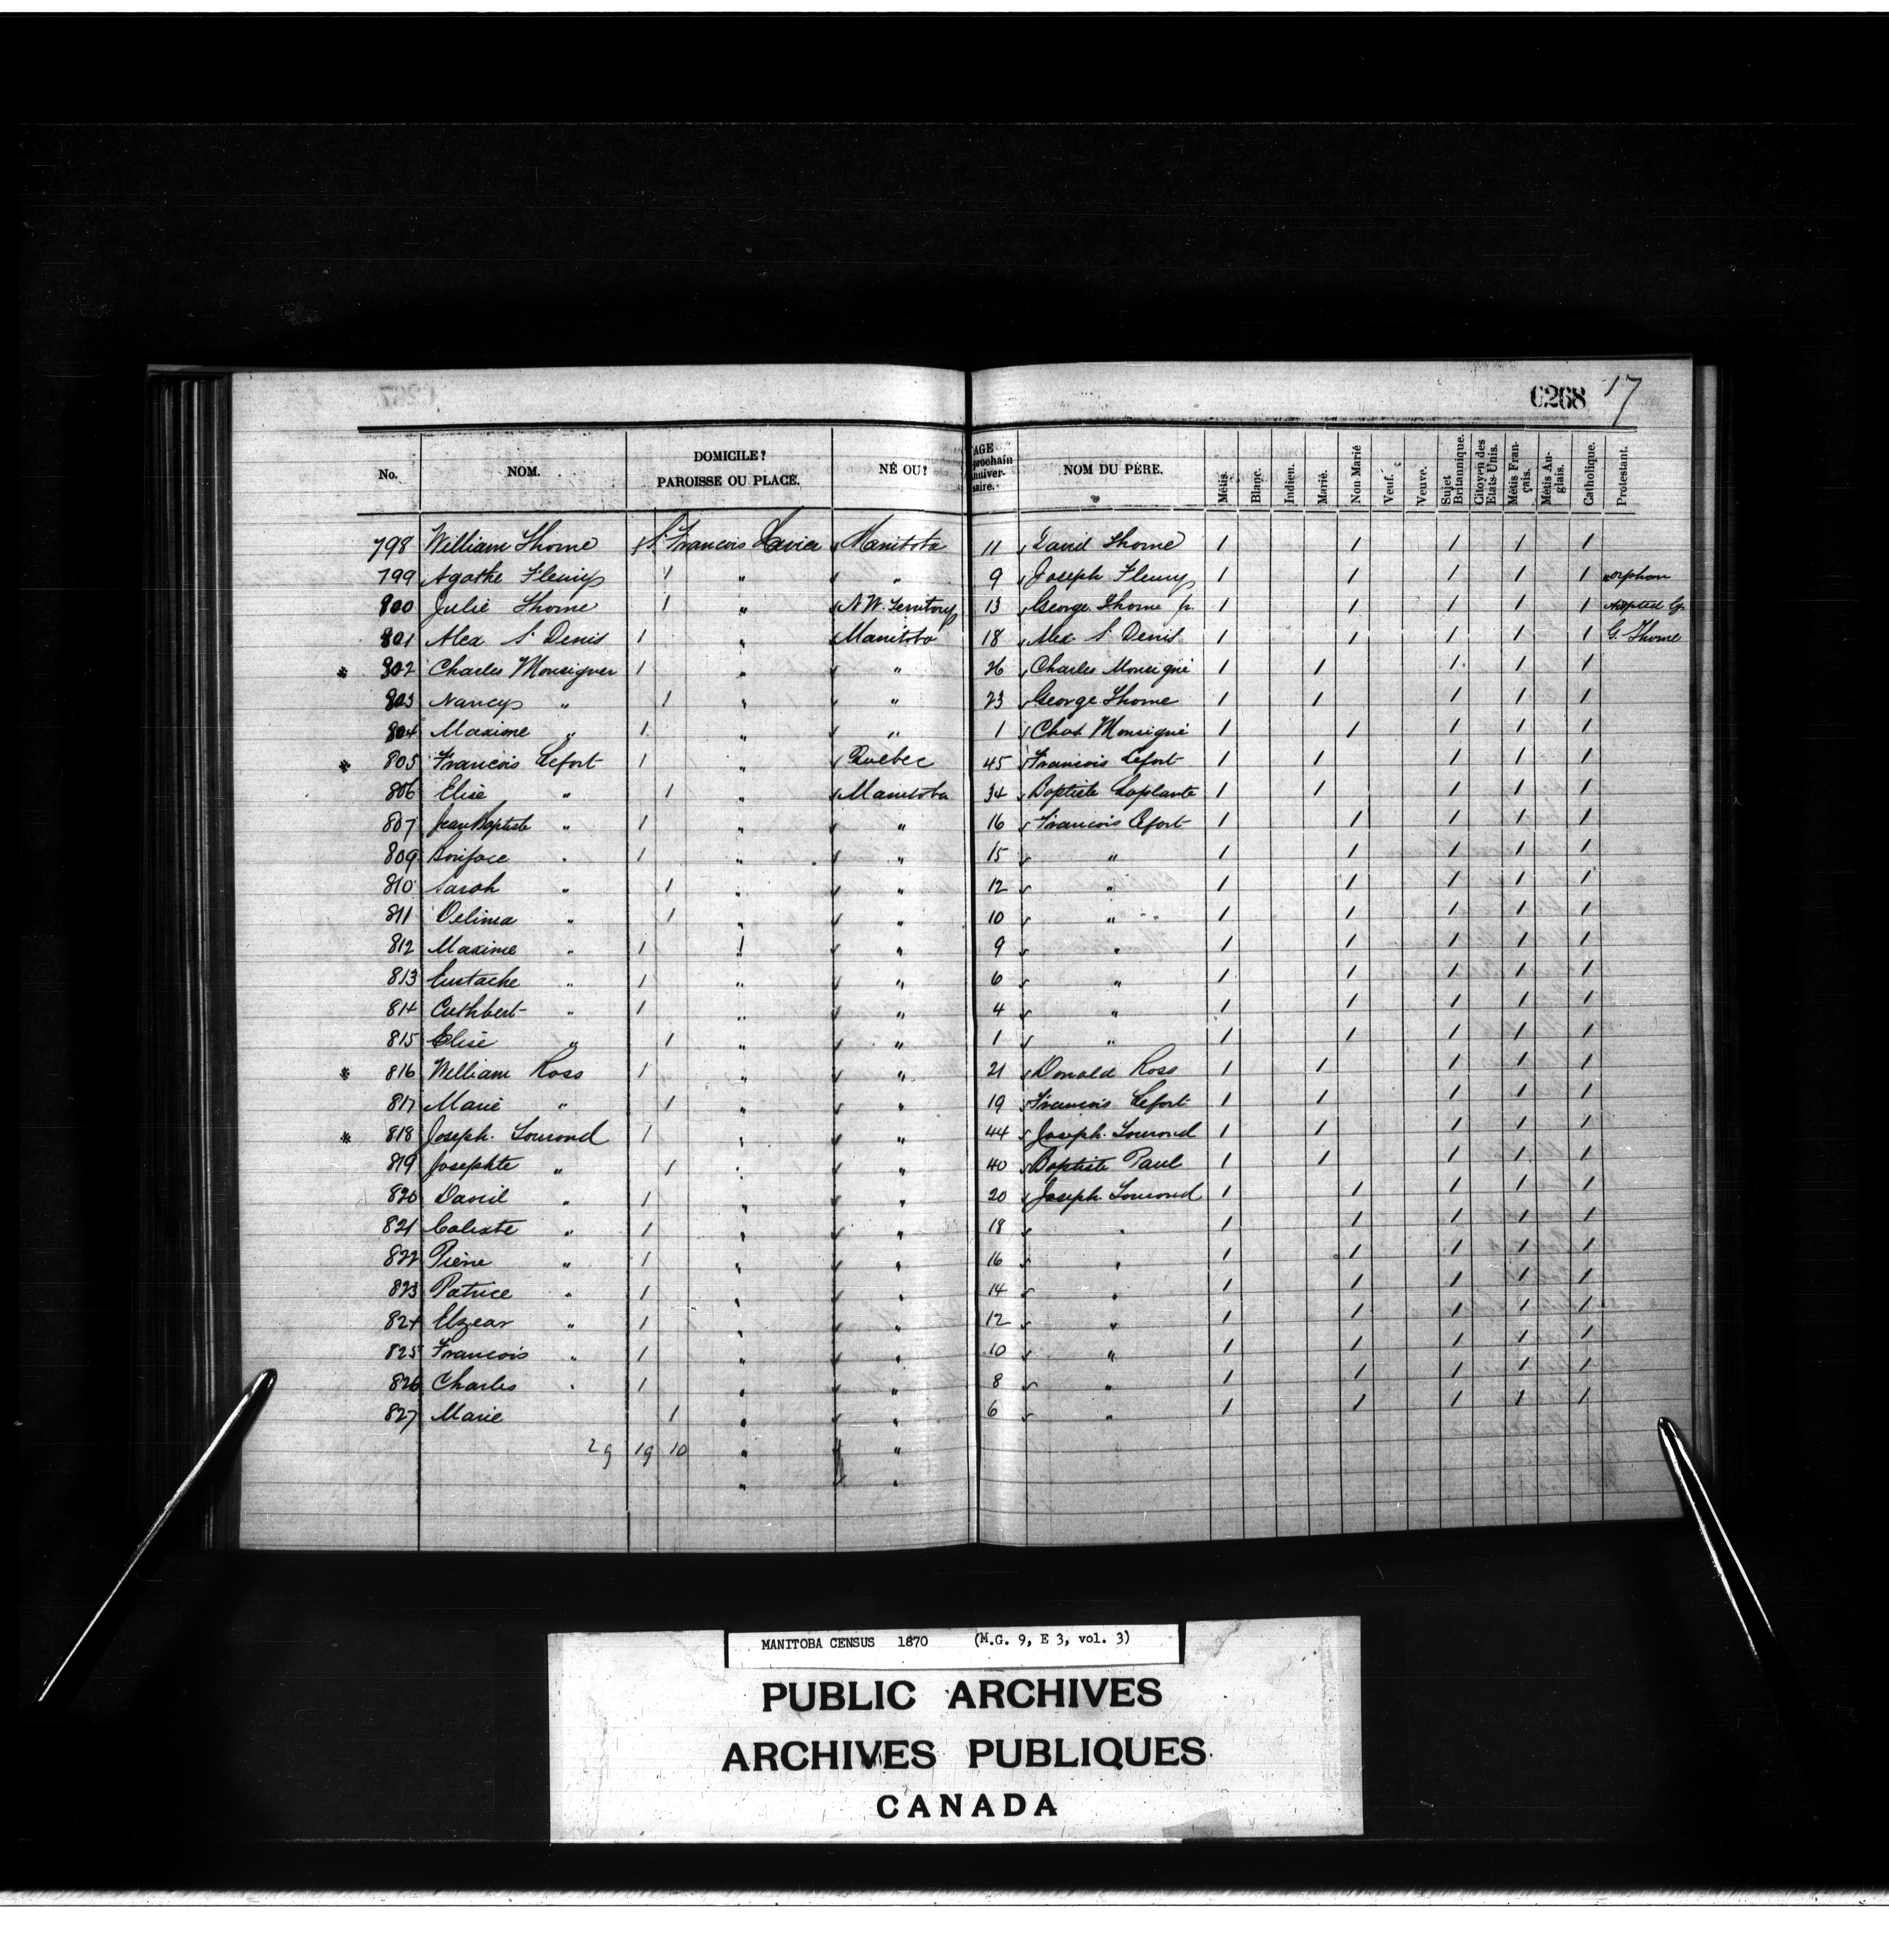 0268 17
No. NOM. DOMICILE? PAROISSE OU PLACE. NÉ OU? AGE prochain anniver-saire. NOM DU PÈRE. Métis. Blanc. Indien. Marié. Non Marié Veuf. Veuve. Sujet Britannique. Citoyen des Etats-Unis. Métis Fran-çais. Métis An-glais. Catholique. Protestant.
798 William Thorne 1 St. Francois Xavier Manitoba 11 David Thorne 1 1 1 1 1
799 Agathe Fleury 1 " " 9 Joseph Fleury 1 1 1 1 1 orphan
800 Julie Thorne 1 " N.W. Territory 13 George Thorne jr. 1 1 1 1 1 Adopted by
801 Alex St Denis 1 " Manitoba 18 Alex St Denis 1 1 1 1 1 G. Thorne
* 802 Charles Monsigner 1 " " 26 Charles Monsigné 1 1 1 1 1
803 Nancy " 1 " " 23 George Thorne 1 1 1 1 1
804 Maxime " 1 " " 1 Chas Monsigné 1 1 1 1 1
* 805 Francois Lefort 1 " Quebec 45 Francois Lefort 1 1 1 1 1
806 Elise " 1 " Manitoba 34 Baptiste Laplante 1 1 1 1 1
807 Jean Baptiste " 1 " " 16 Francois Lefort 1 1 1 1 1
809 Boniface " 1 " " 15 " 1 1 1 1 1
810 Sarah " 1 " " 12 " 1 1 1 1 1
811 Delima " 1 " " 10 " 1 1 1 1 1
812 Maxime " 1 " " 9 " 1 1 1 1 1
813 Eustache " 1 " " 6 " 1 1 1 1 1
814 Cuthbert " 1 " " 4 " 1 1 1 1 1
815 Elise " 1 " " 1 " 1 1 1 1 1
* 816 William Ross 1 " " 21 Donald Ross 1 1 1 1 1
817 Marie " 1 " " 19 Francois Lefort 1 1 1 1 1
* 818 Joseph Lourond 1 " " 44 Joseph Lourond 1 1 1 1 1
819 Josephte " 1 " " 40 Baptiste Paul 1 1 1 1 1
820 David " 1 " " 20 Joseph Lourond 1 1 1 1 1
821 Calixte " 1 " " 18 " 1 1 1 1 1
822 Pierre " 1 " " 16 " 1 1 1 1 1
823 Patrice " 1 " " 14 " 1 1 1 1 1
824 Elzear " 1 " " 12 " 1 1 1 1 1
825 Francois " 1 " " 10 " 1 1 1 1 1
826 Charles " 1 " " 8 " 1 1 1 1 1
827 Marie 1 " " 6 " 1 1 1 1 1
29 19 10 " "
" "
MANITOBA CENSUS 1870 (M.G. 9, E 3, vol. 3)
PUBLIC ARCHIVES
ARCHIVES PUBLIQUES
CANADA